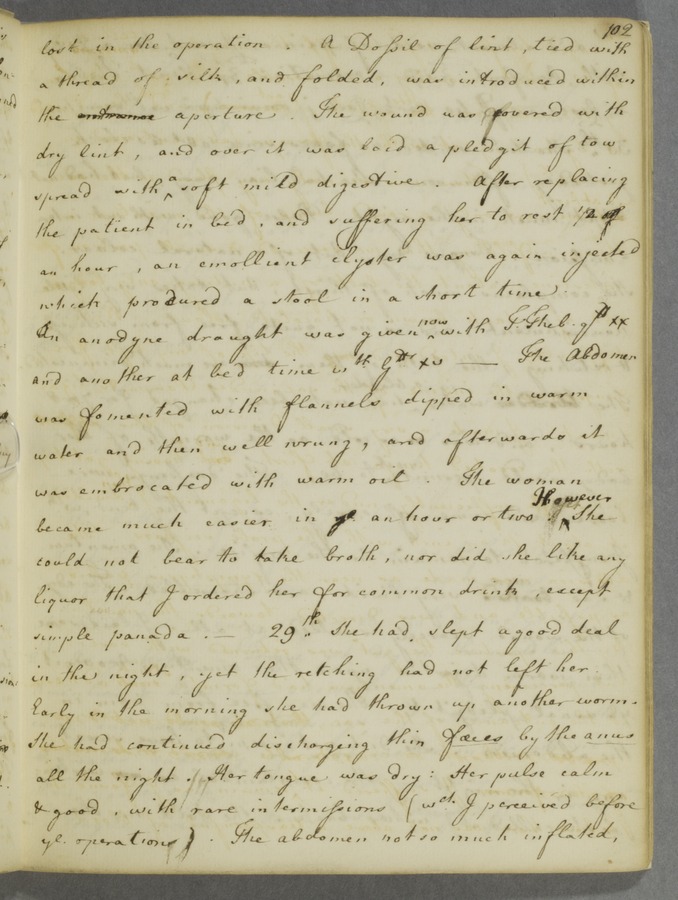 102
lost in the operation. A Dossil of lint, tied with
a thread of silk, and folded, was introduced within
the entrance aperture. The wound was covered with
dry lint, and over it was laid a pledgit of tow
spread with a soft mild digestive. After replacing
the patient in bed, and suffering her to rest 1/2 of
an hour, an emollient clyster was again injected
which procured a stool in a short time.
An anodyne draught was given now with T. Theb. gtt xx
and another at bed time wth gtts xv — The Abdomen
was fomented with flannels dipped in warm
water and then well wrung, and afterwards it
was embrocated with warm oil. The woman
became much easier in an hour or two. However She
could not bear to take broth, nor did she like any
liquor that I ordered her for common drink, except
simple panada. — 29th. She had slept a good deal
in the night, yet the retching had not left her.
Early in the morning she had thrown up another worm.
She had continued discharging thin fæces by the anus
all the night. Her tongue was dry: Her pulse calm
& good, with rare intermissions (wch. I perceived before
ye. operation). The abdomen not so much inflated,